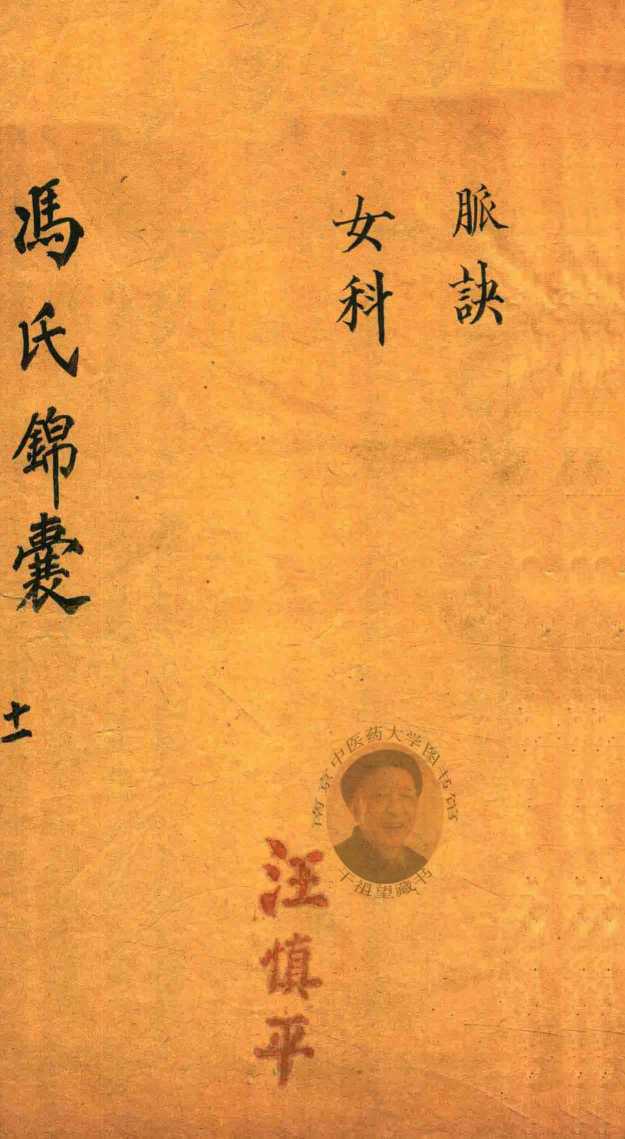 脈訣
女科
馮氏錦囊
十一
南京中医药大学图书馆
干祖望藏书
汪慎平